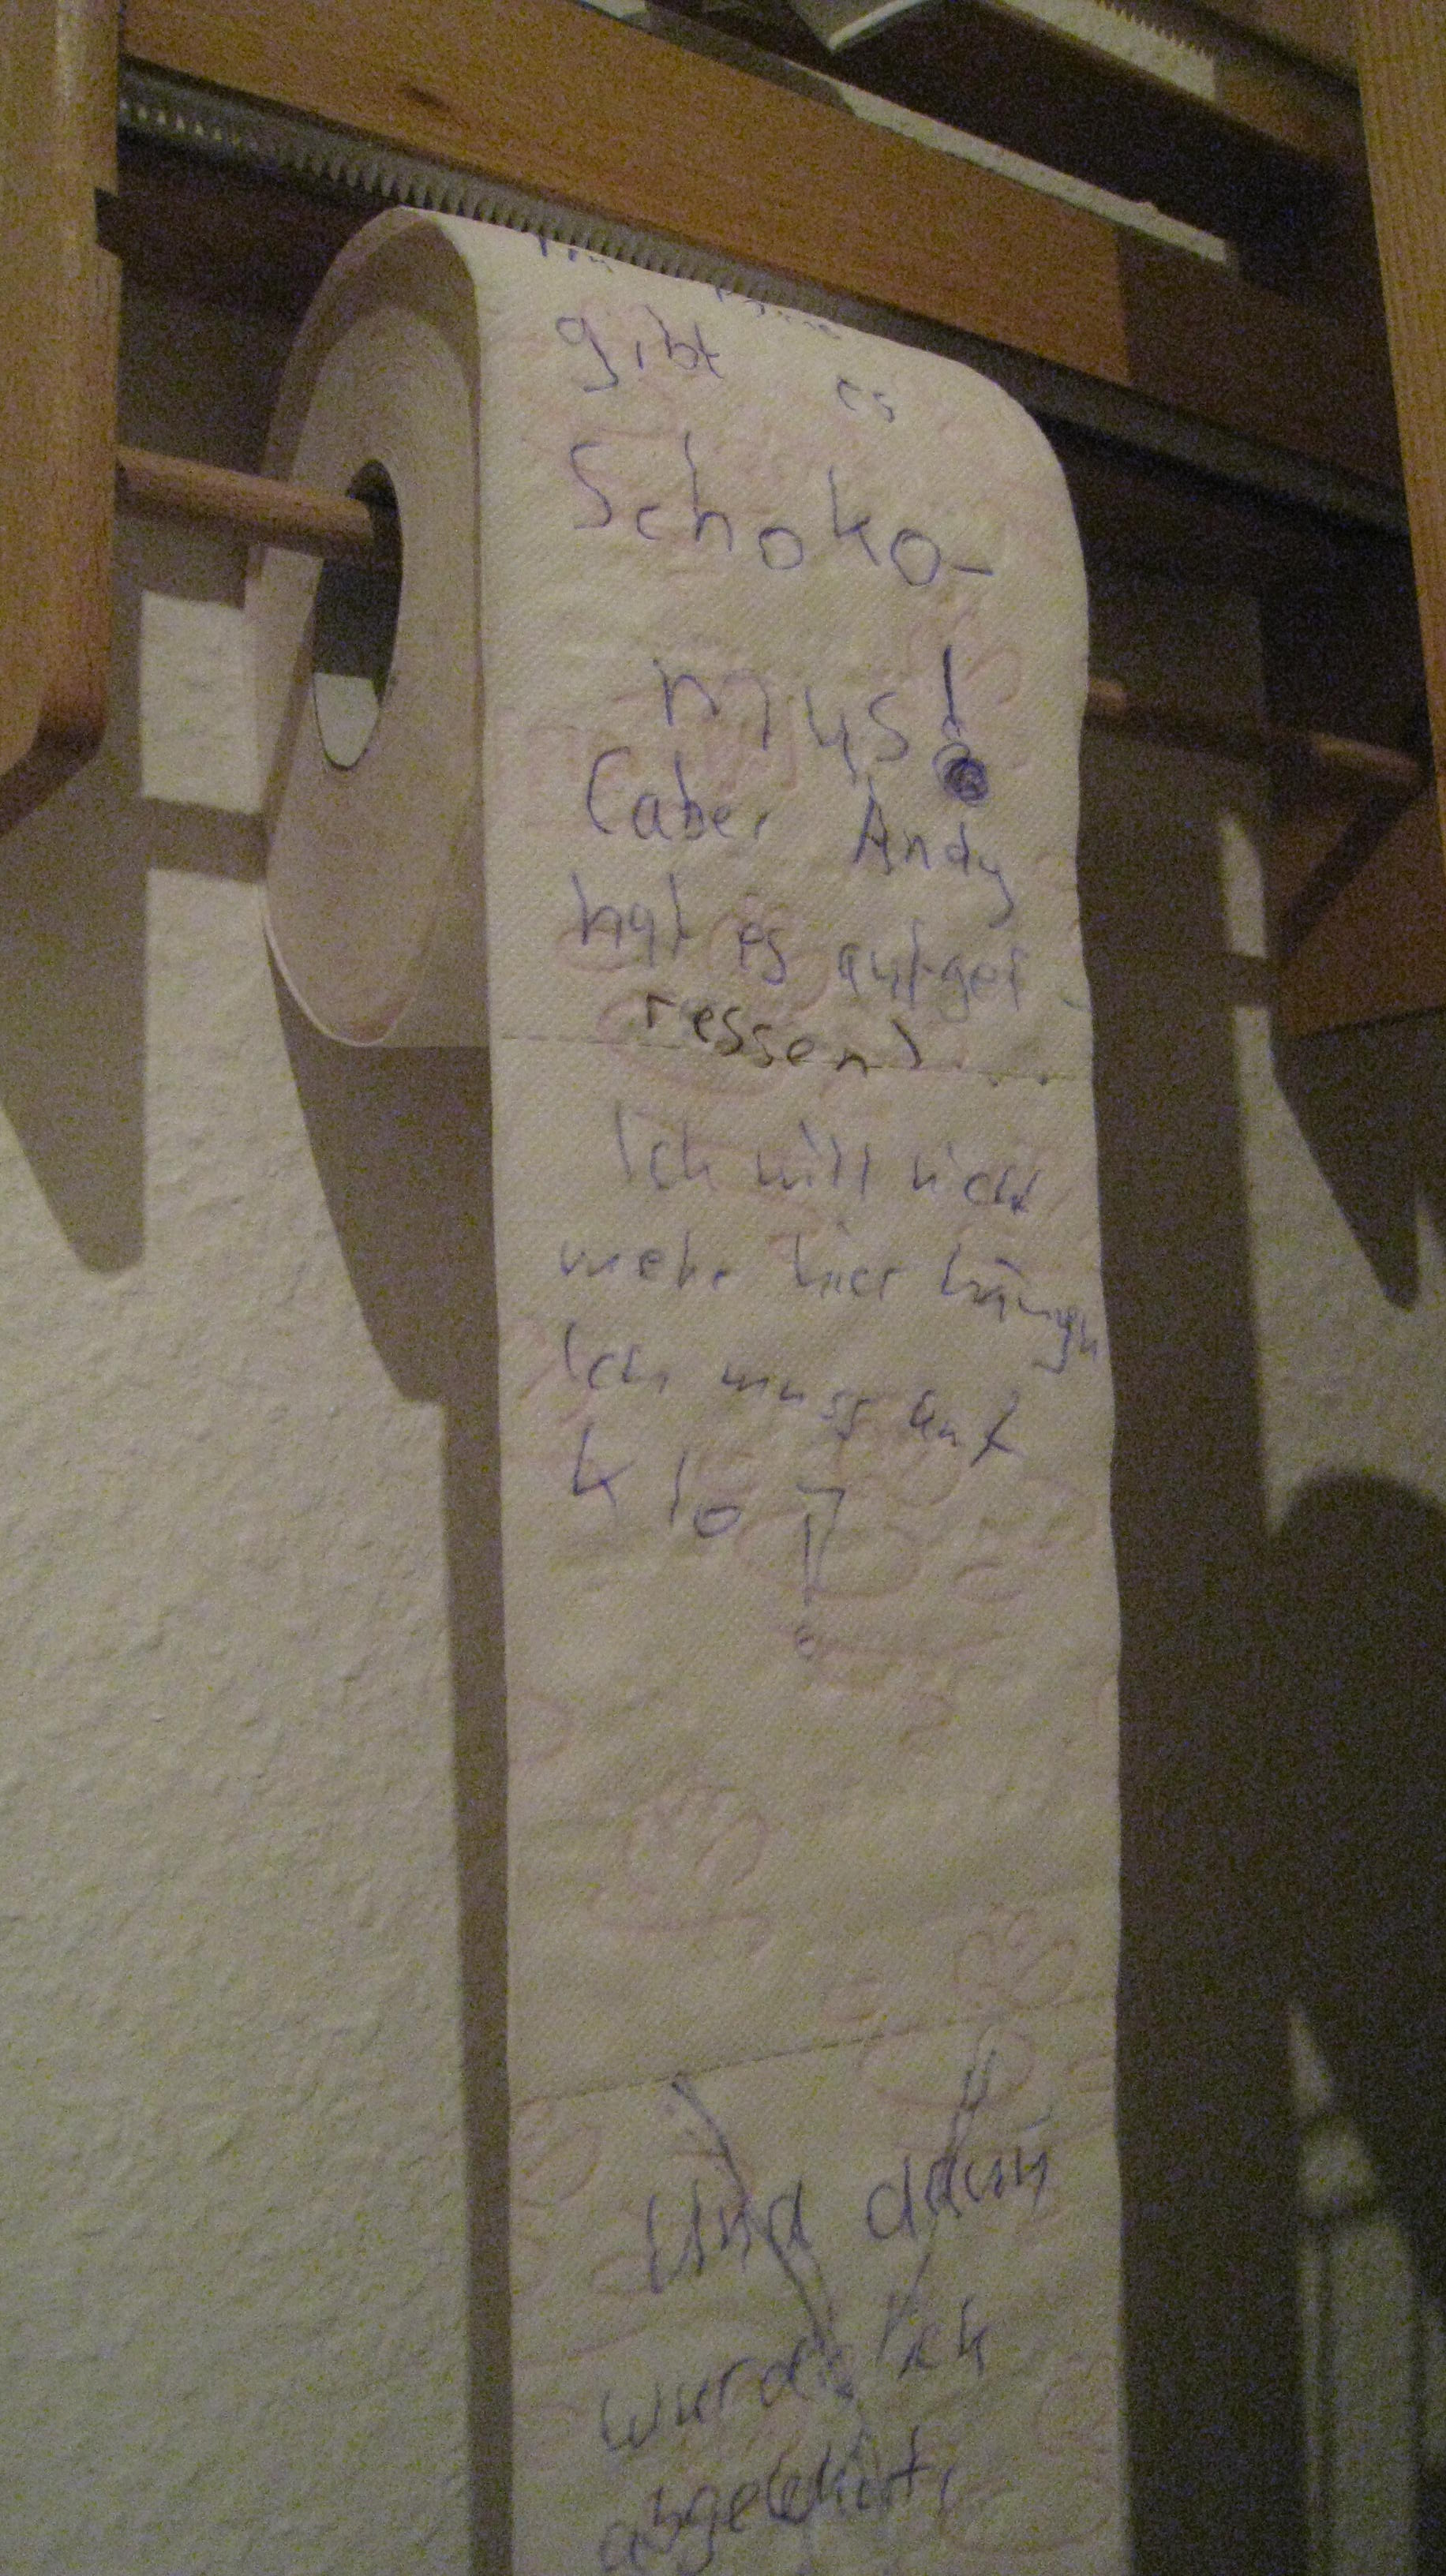 gibt es
Schoko-
mus!
(aber Andy
hat es aufgef-
ressen) ...
Ich will nicht
mehr hier hängen
Ich muss auf
Klo!
Und dann
wurde ich
abgelenkt,